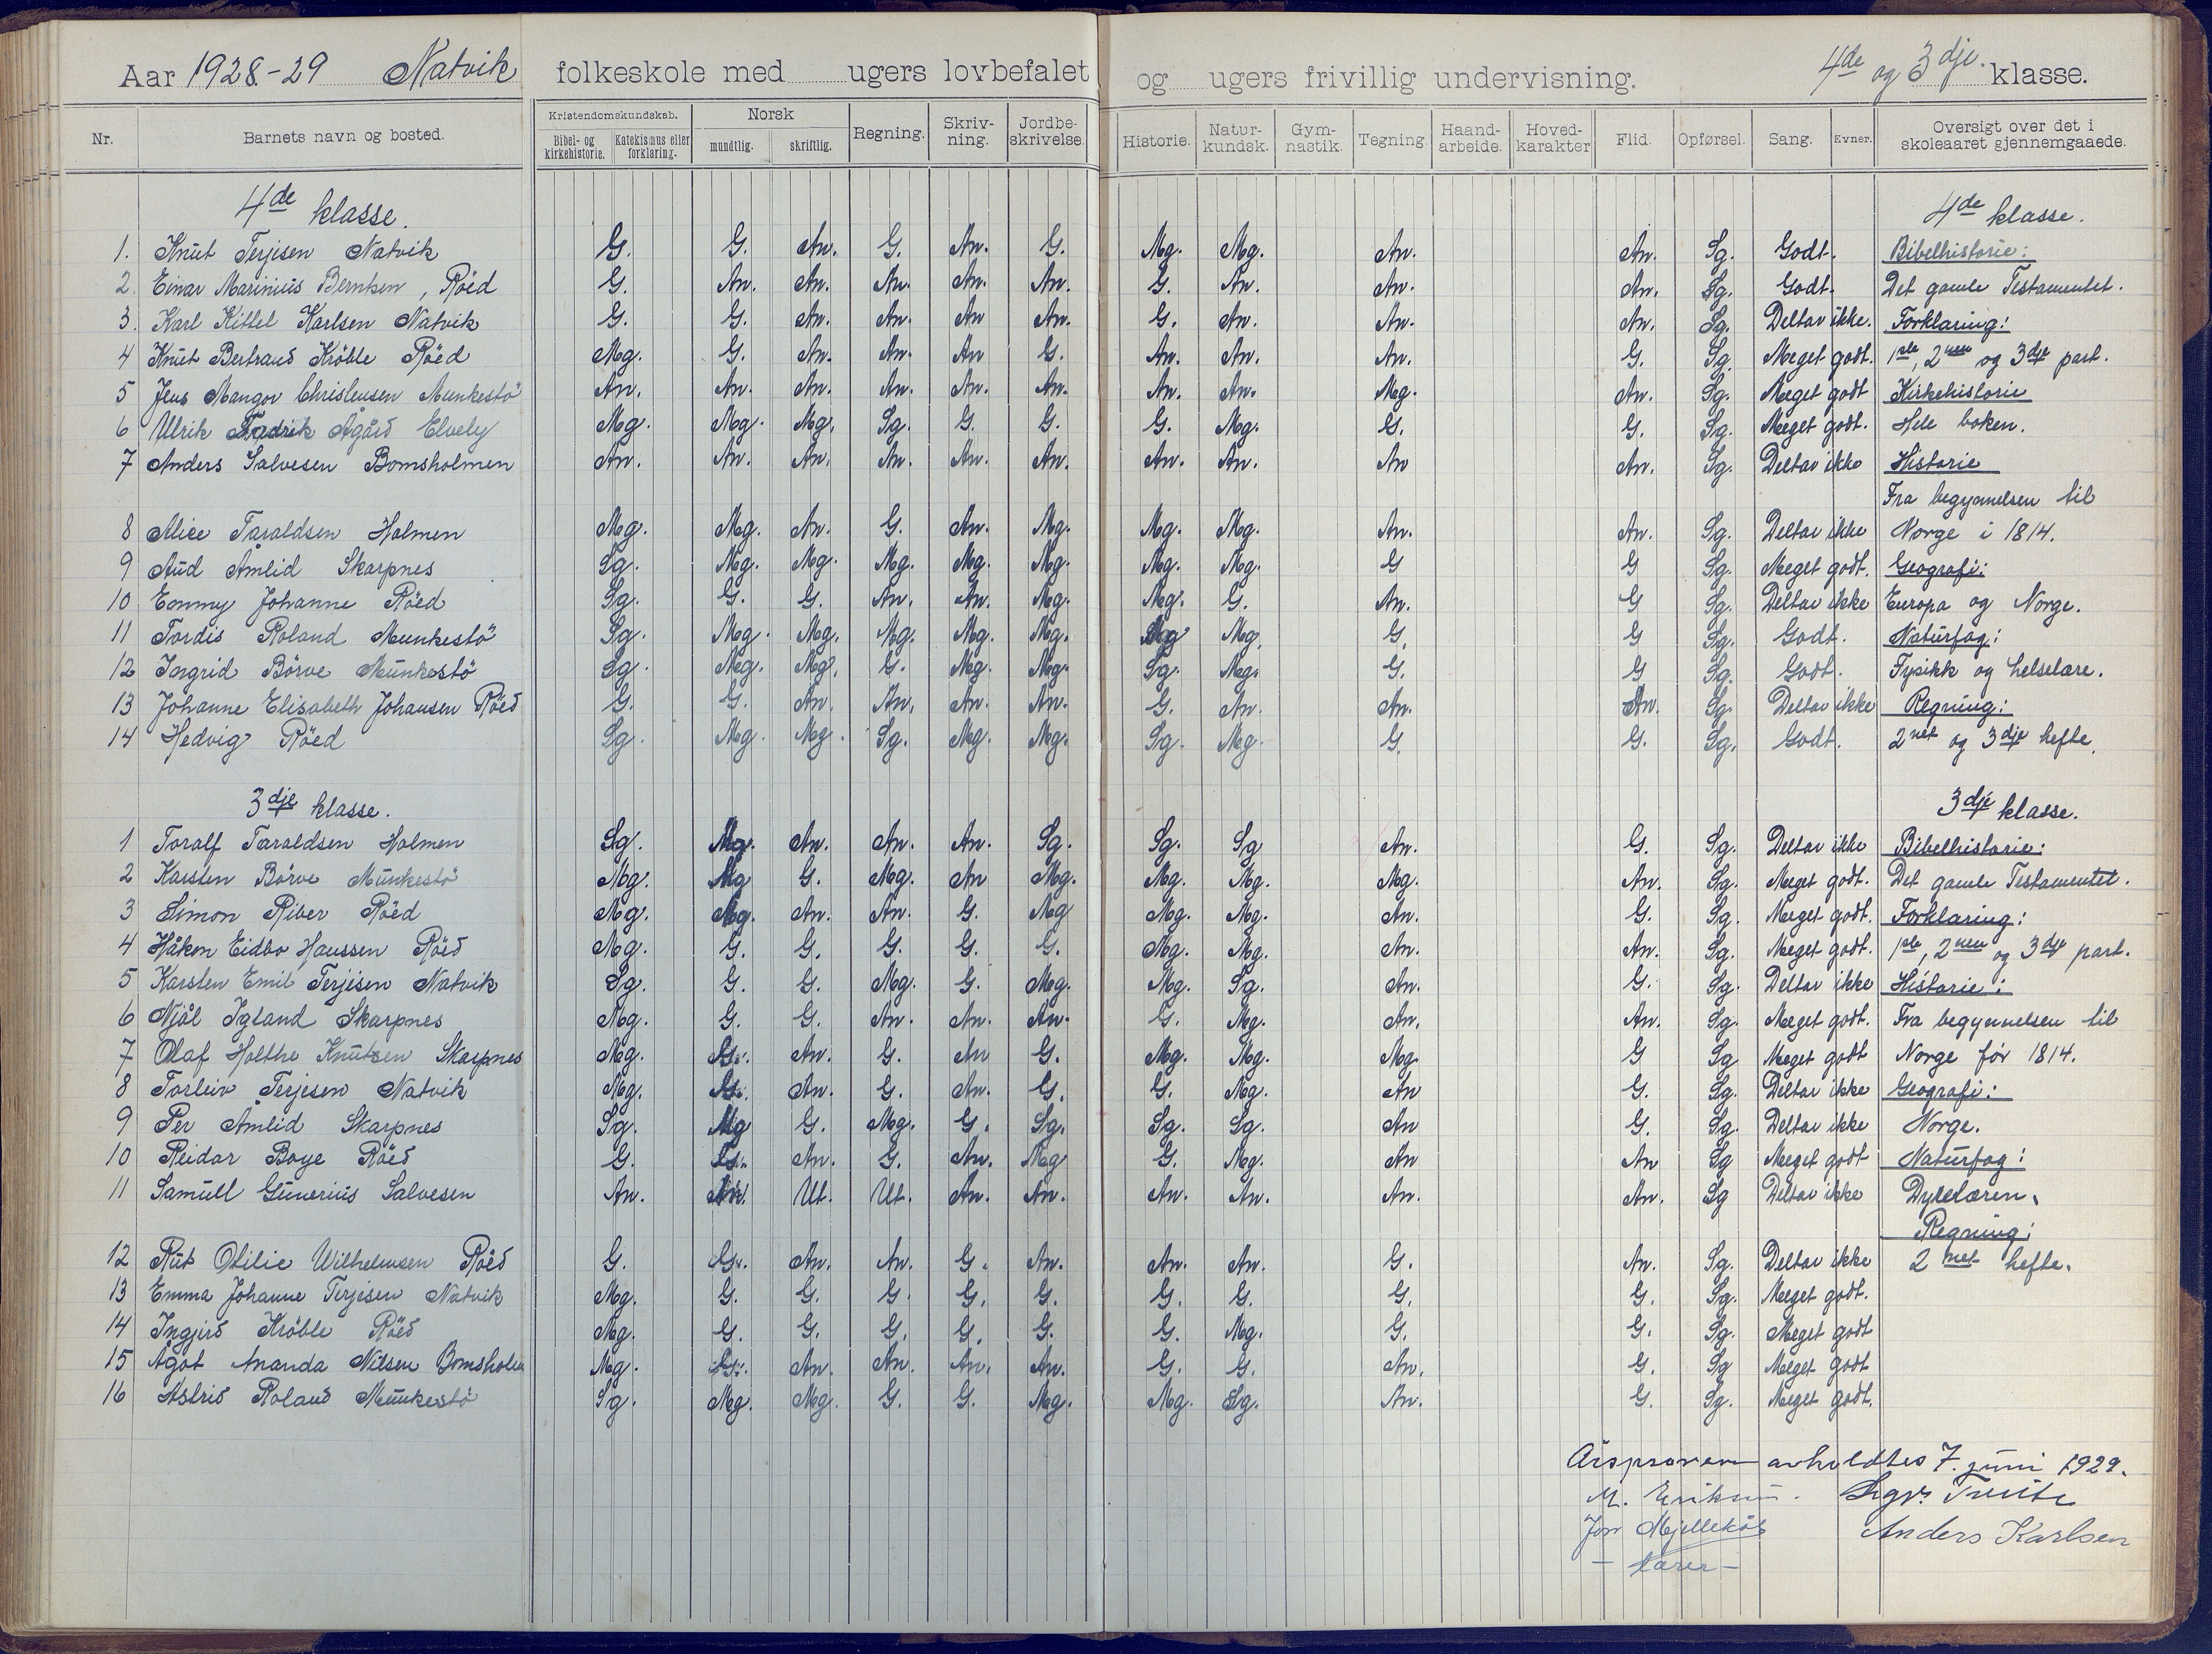 Aar 1928-29 Natvik folkeskole med ugers lovbefalet og ugers frivillig undervisning. 4de og 3dje klasse.
Nr. Barnets navn og bosted. Kristendomskundskab. Bibel- og kirkehistorie. Katekismus eller forklaring. Norsk mundtlig. skriftlig. Regning. Skriv-ning. Jordbe-skrivelse. Historie. Natur-kundsk. Gym-nastik. Tegning. Haand-arbeide. Hoved-karakter Flid. Opførsel. Sang. Evner. Oversigt over det i skoleaaret gjennemgaaede.
4de klasse. 4de klasse.
1. Knut Terjesen Natvik G. G. An. G. An. G. Mg. Mg. An. An. Sg. Godt. Bibelhistorie:
2. Einar Marinius Berntsen, Röed G. An. An. An. An. An. G. An. An. An. Sg. Godt. Det gamle Testamentet.
3. Karl Kittel Karlsen Natvik G. G. An. An. An An. G. An. An. An. Sg. Deltar ikke. Forklaring:
4 Knut Bertrand Kröble Röed Mg. G. An. An. An G. An. An. An. G. Sg. Meget godt. 1ste, 2nen og 3dje part.
5 Jens Mangor Christensen Munkestö An. An. An. An. An. An. An. An. Mg. An. Sg. Meget godt Kirkehistorie
6 Ulrik Fredrik Ågård Elvely Mg. Mg. Mg. Sg. G. G. G. Mg. G. G. Sg. Meget godt. Hele boken.
7 Anders Salvesen Bomsholmen An. An. An. An. An. An. An. An. An An. Sg. Deltar ikke Historie
Fra begynnelsen til
8 Alice Taraldsen Holmen Mg. Mg. An. G. An. Mg. Mg. Mg. An. An. Sg. Deltar ikke Norge i 1814.
9 Aud Åmlid Skarpnes Sg. Mg. Mg. Mg. Mg. Mg. Mg. Mg. G G Sg. Meget godt. Geografi:
10 Emmy Johanne Röed Sg. G. G. An. An. Mg. Mg. G. An. G Sg. Deltar ikke Europa og Norge.
11 Tordis Roland Munkestö Sg. Mg. Mg. Mg. Mg. Mg. Sg Mg. G. G Sg. Godt. Naturfag:
12 Ingrid Börve Munkestö Sg. Mg. Mg. G. Mg. Mg. Sg. Mg. G. G Sg. Godt. Fysikk og helselære.
13 Johanne Elisabeth Johansen Röed G. G. An. An. An. An. G. An. An. An. Sg. Deltar ikke Regning:
14 Hedvig Röed Sg. Mg. Mg. Sg. Mg. Mg. Sg. Mg. G. G. Sg. Godt. 2net og 3dje hefte.
3dje klasse. 3dje klasse.
1 Toralf Taraldsen Holmen Sg. Mg. An. An. An. Sg. Sg. Sg An. G. Sg. Deltar ikke Bibelhistorie:
2 Karsten Börve Munkestö Mg. Mg G. Mg. An Mg. Mg. Mg. Mg. An. Sg. Meget godt. Det gamle Testamentet.
3 Simon Riber Röed Mg. Mg. An. An. G. Mg Mg. Mg. An. G. Sg. Meget godt. Forklaring:
4 Håkon Eidbo Hanssen Röed Mg. G. G. G. G. G. Mg. Mg. An. An. Sg. Meget godt. 1ste, 2nen og 3dje part.
5 Karsten Emil Terjesen Natvik Sg. G. G. Mg. G. Mg. Mg. Sg. An. G. Sg. Deltar ikke Historie:
6 Njål Igland Skarpnes Mg. G. G. An. An. An. G. Mg. An. An. Sg. Meget godt. Fra begynnelsen til
7 Olaf Holthe Knutsen Skarpnes Mg. G. An. G. An G. Mg. Mg. Mg. G Sg Meget godt Norge før 1814.
8 Torleiv Terjesen Natvik Mg. G. An. G. An. G. G. Mg. An G. Sg. Deltar ikke Geografi:
9 Per Åmlid Skarpnes Sg. Mg G. Mg. G. Sg. Sg. Sg. An G. Sg. Deltar ikke Norge.
10 Reidar Boye Röed G. G. An. G. An. Mg G. Mg. An An Sg Meget godt Naturfag:
11 Samuell Gunerius Salvesen An. An. Ut. Ut. An. An. An. An. An. An. Sg Deltar ikke Dyrelæren.
Regning:
12 Rut Otilie Wilhelmsen Röed G. G. An. An. G. An. An. An. G. An. Sg. Deltar ikke 2net hefte.
13 Emma Johanne Terjesen Natvik Mg. G. G. G. G. G. G. G. G. G. Sg. Meget godt.
14 Ingjerd Kröble Röed Mg. G. G. G. G. G. G. Mg. G. G. Sg. Meget godt
15 Ågot Ananda Nilsen Bomsholm Mg. G. An. An. An. An. G. G. An. G. Sg Meget godt
16 Astrid Roland Munkestö Sg. Mg. Mg. G. G. Mg. Mg. Sg. An. G. Sg. Meget godt.
Årsprøven avholdtes 7. juni 1929.
M. Eriksen. Sigv. Tveite
Jon Mjelleköl Anders Karlsen
- lærer -